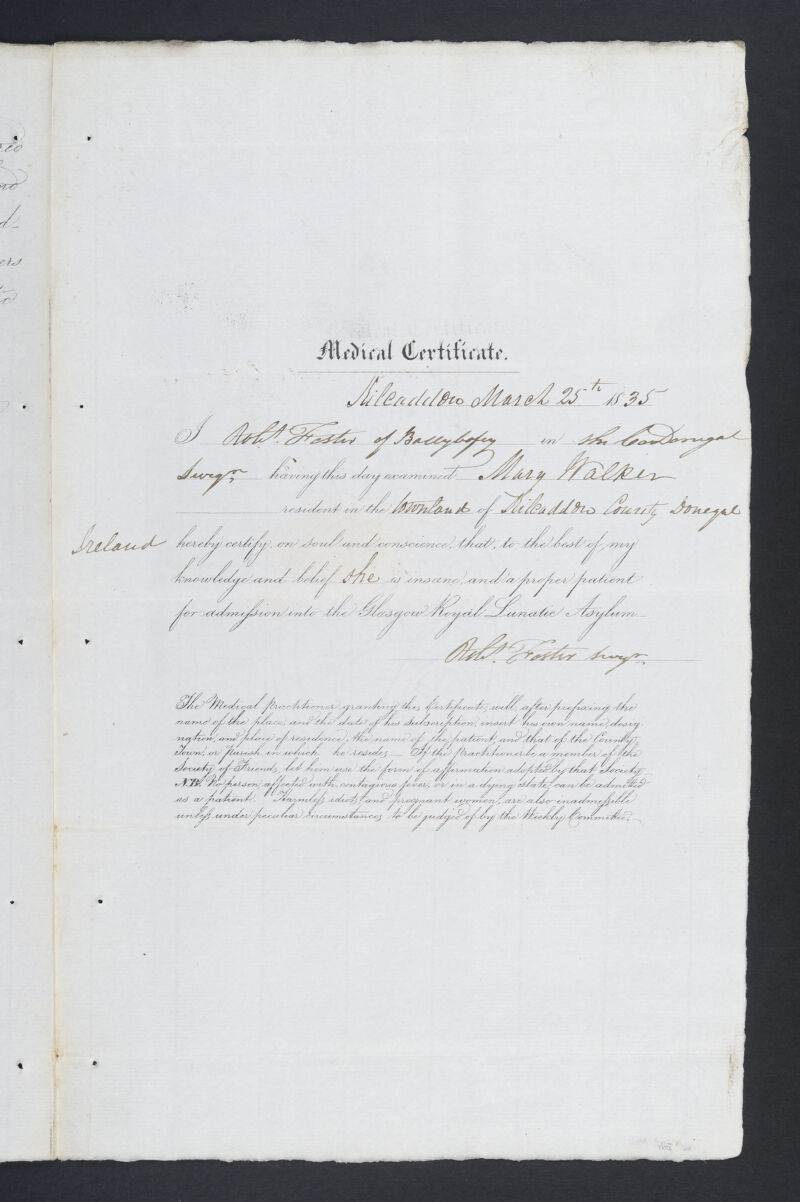 Medical Certificate.
Kilcaddow March 25th 1835
I Robt. Foster of Ballybofey in the Co Donegal
Surgn. having this day examined Mary Walker
resident in the townland of Kilcaddow County Donegal
Ireland hereby certify, on soul and conscience, that, to the best of my
knowledge and belief she is insane, and a proper patient
for admission into the Glasgow Royal Lunatic Asylum
Robt. Foster Surgn.
The Medical practitioner granting this Certificate, will, after prefixing the
name of the place, and the date of his subscription, insert his own name, desig-
nation, and place of residence, the name of the patient, and that of the Country
Town, or Parish in which he resides — If the practitioner be a member of the
Society of Friends, let him use the form of affirmation adopted by that Society
N.B. No person affected with contagious fever, or in a dying state, can be admitted
as a patient. Harmless idiots, and pregnant women, are also inadmissible
unless under peculiar circumstances, to be judged of by the Weekly Committee.